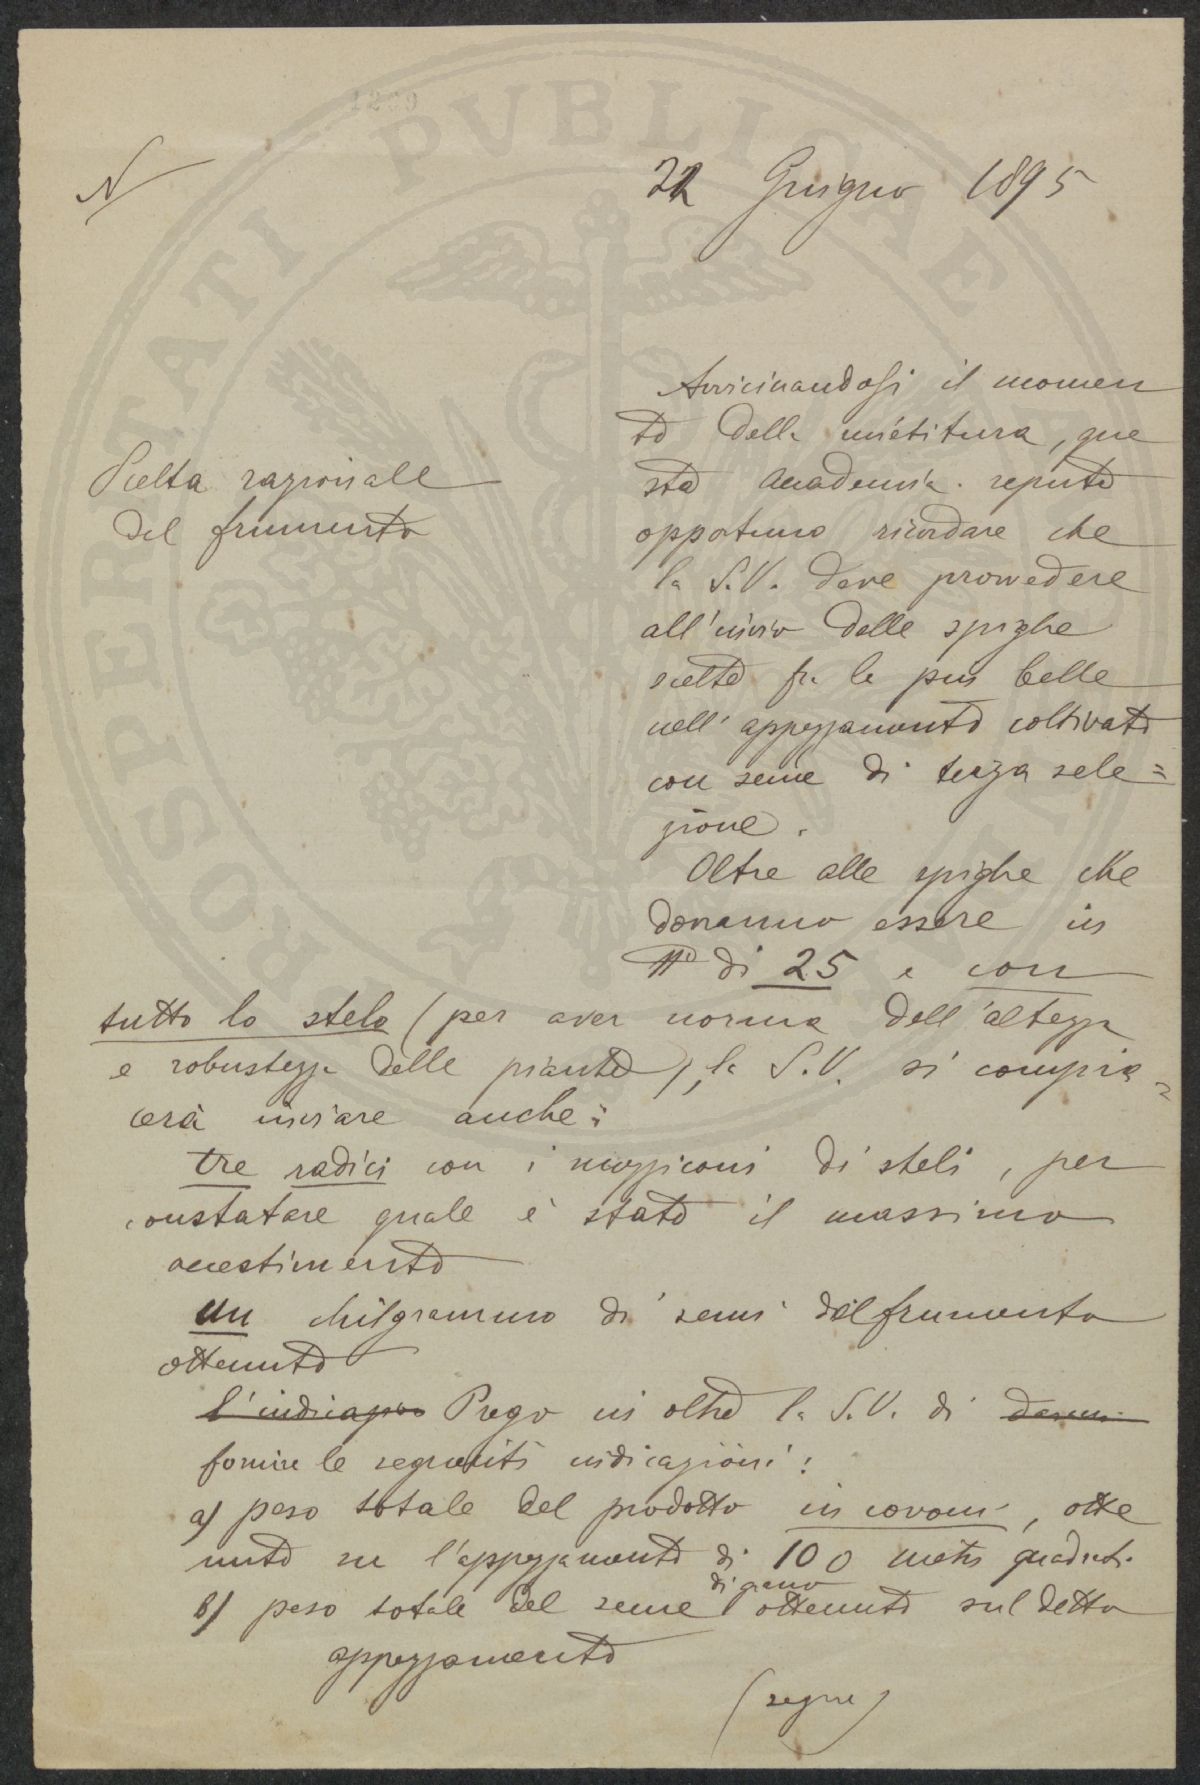 N
22 Giugno 1895
Scelta razionale
del frumento
Avvicinandosi il momen
to della mietitura, que
sta Accademia reputa
opportuno ricordare che
la S.V. deve provvedere
all'invio delle spighe
scelte fra le più belle
nell'appezzamento coltivato
con seme di terza sele=
zione.
Oltre alle spighe che
dovranno essere in
N° di 25 e con
tutto lo stelo (per aver norma dell'altezza
e robustezza delle piante), la S.V. si compia=
cerà inviare anche:
tre radici con i mozziconi di steli, per
constatare quale è stato il massimo
accestimento
Un chilgrammo di semi del frumento
ottenuto
Prego in oltre la S.V. di
fornire le seguenti indicazioni:
a) peso totale del prodotto in covoni, otte
nuto su l'appezzamento di 100 metri quadrati
b) peso totale del seme di grano ottenuto sul detto
appezzamento
(segue)
POSPERITATI PVBLICAE